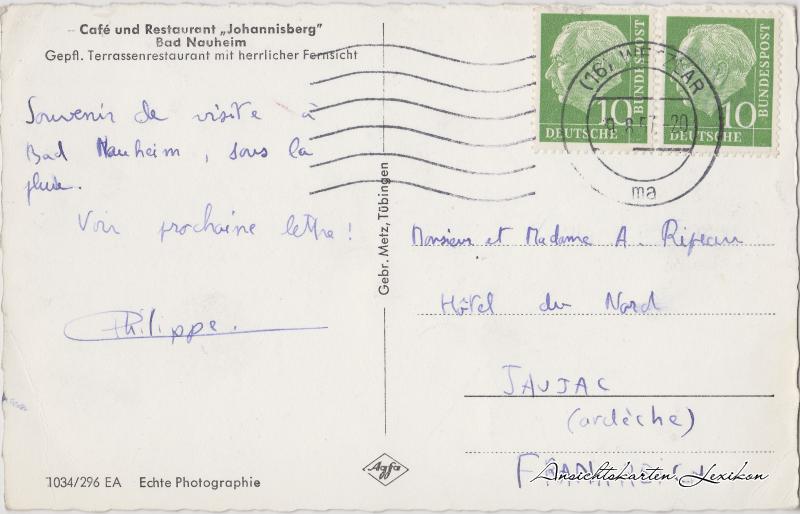 Café und Restaurant „Johannisberg"
Bad Nauheim
Gepfl. Terrassenrestaurant mit herrlicher Fernsicht
Souvenir de visite à
Bad Nauheim, sous la
pluie.
Voir prochaine lettre!
Philippe.
1034/296 EA Echte Photographie
Gebr. Metz, Tübingen
Agfa
10
DEUTSCHE
BUNDESPOST
10
DEUTSCHE
BUNDESPOST
(16) WETZLAR
ma
Monsieur et Madame A. Ripeau
Hôtel du Nord
JAUJAC
(ardèche)
FRANKREICH
Ansichtskarten-Lexikon